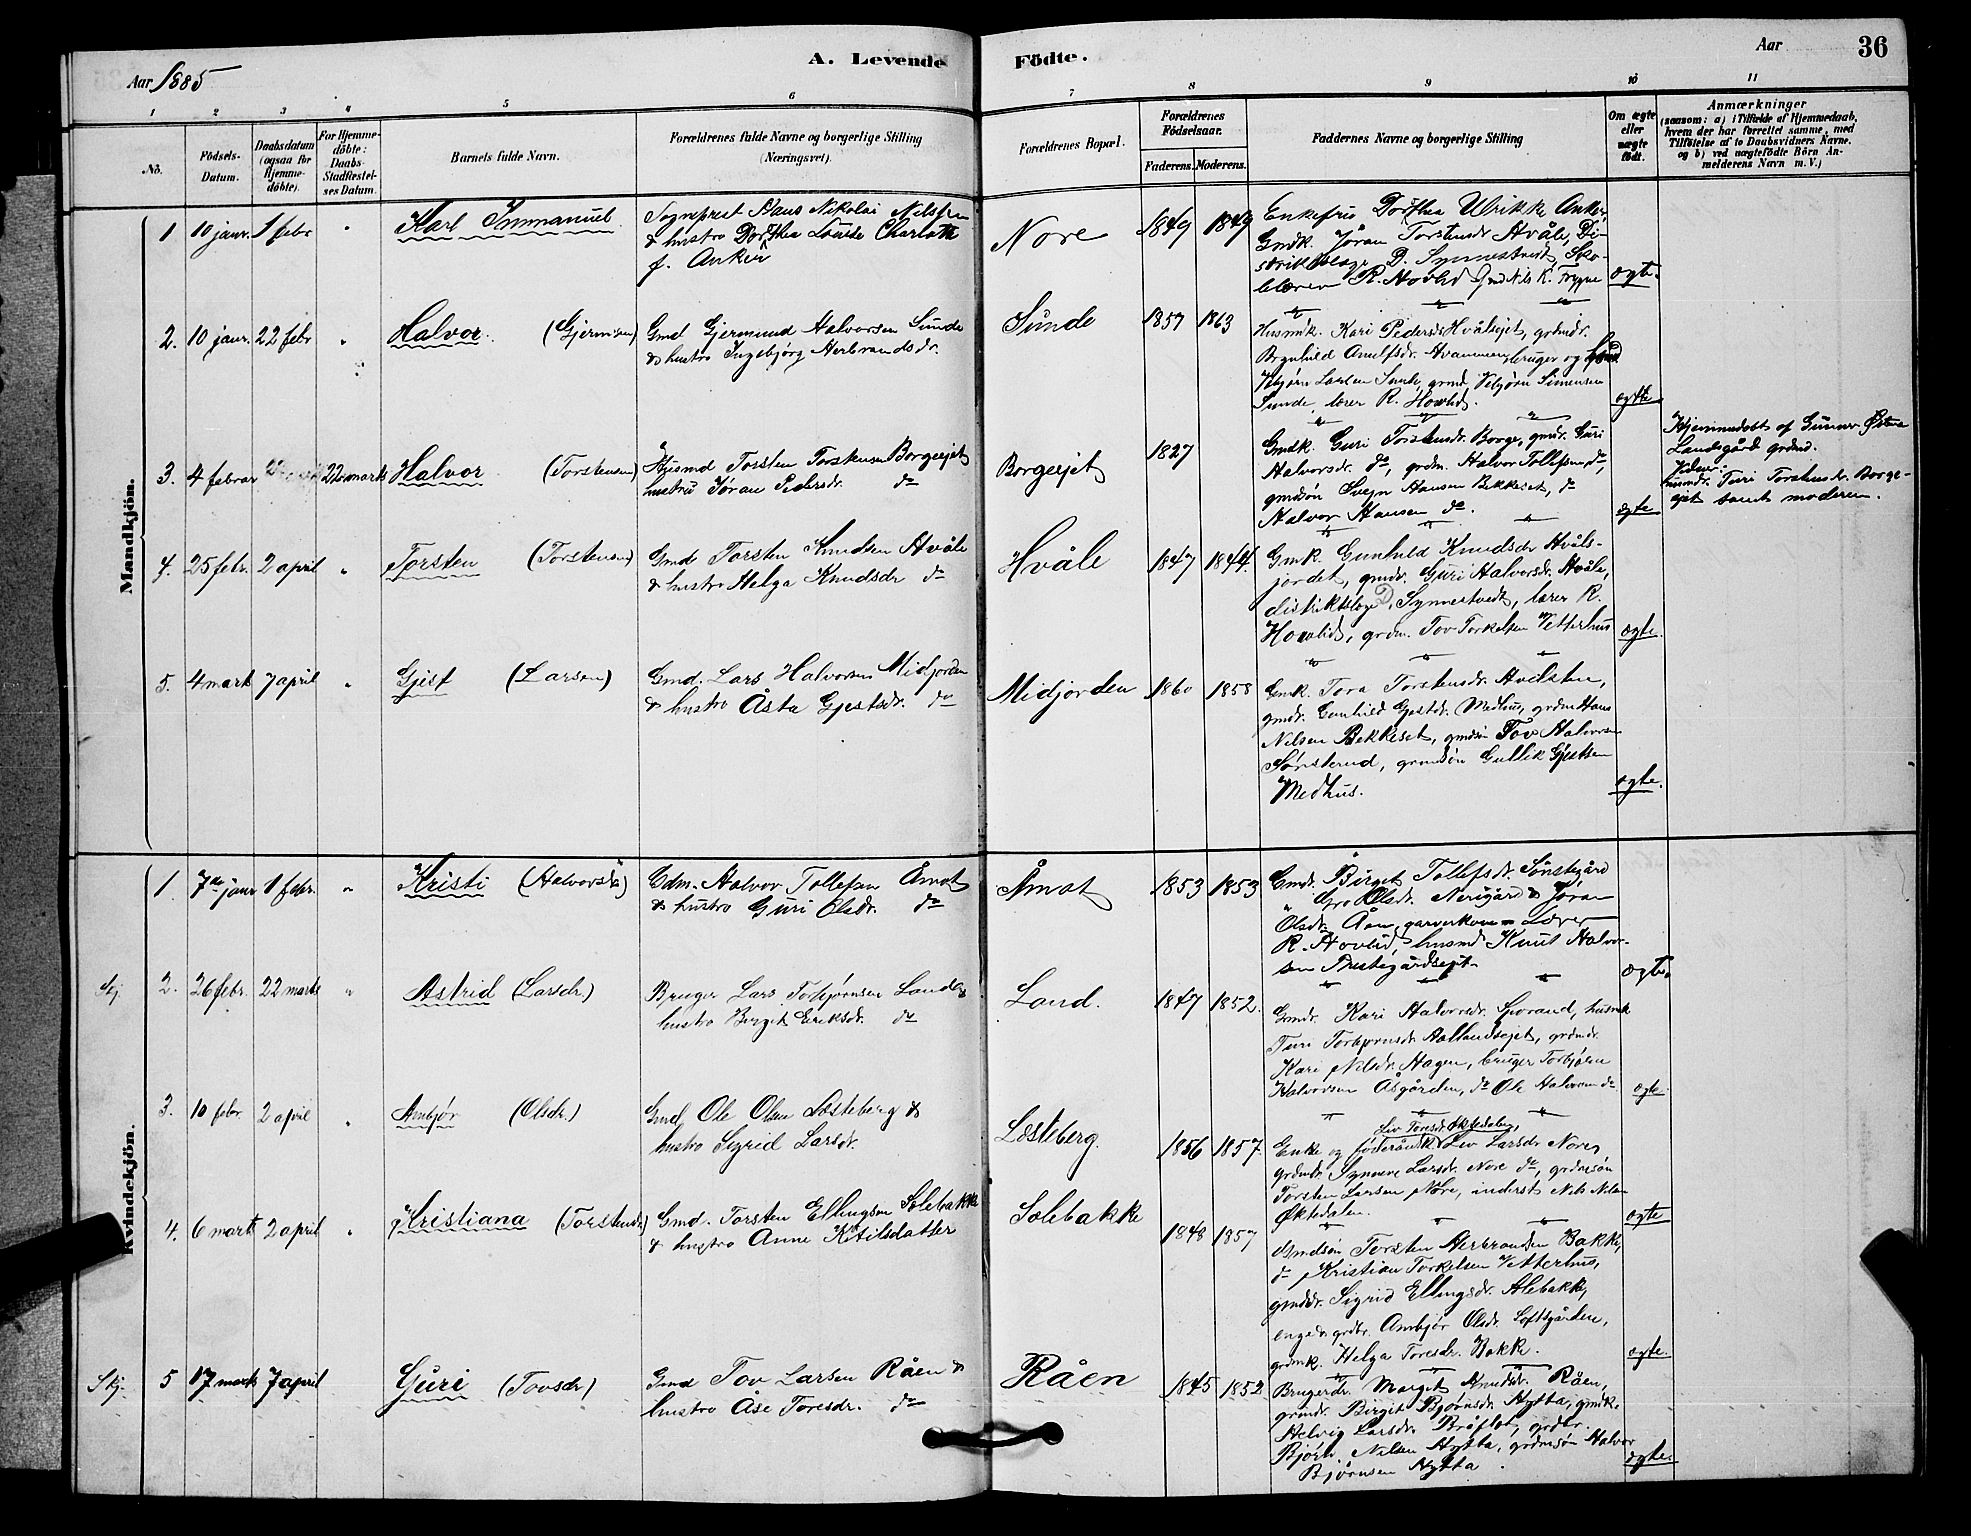 A. Levende Födte.
Aar 1885
Aar
36
1 2 3 4 5 6 7 8 9 10 11
No.
Födsels-Datum.
Daabsdatum (ogsaa for Hjemme-döbte).
For Hjemme-döbte: Daabs-Stadfæstel-ses Datum.
Barnets fulde Navn.
Forældrenes fulde Navne og borgerlige Stilling (Næringsvei).
Forældrenes Bopæl.
Forældrenes Födselsaar.
Faderens. Moderens.
Faddernes Navne og borgerlige Stilling
Om ægte eller uægte född.
Anmærkninger
(saasom: a) i Tilfælde af Hjemmedaab, hvem der har forrettet samme, med Tilföielse af to Daabsvidners Navne, og b) ved uægtefödte Börn An-melderens Navn m. V.)
Mandkjön.
1 10 janr. 1 febr " Karl Immanuel
Sogneprest Hans Nikolai Nilssen
& hustro Dorthea Louise Charlotte
f. Anker
Nore 1849 1849
Enkefru Dorthea Ulrikke Anker,
Gmdk. Jøran Torstensdr Hvåle, Di-
striktslæge D. Synnestvedt, Sko-
lelærer R. Hovlid Gmd Nils K. Frygne
ægte.
2. 10 janr. 22 febr " Halvor. (Gjermsen)
Gmd Gjermund Halvorsen Sunde
& hustro Ingebjørg Herbrandsdr.
Sunde 1857 1863
Husmk. Kari Pedersdr Hvålsejet, grdmdr.
Brynhild Arnulfsdr. Hvammen, bruger og
Vebjørn Larsen Sunde, grmd. Vebjørn Simensen
Sunde, lærer R. Hovlid.
ægte
3. 4 februar 22 mark Halvor (Torstensen)
Husmd Torsten Torstensen Borgesejet
hustru Jøran Pedersdr. do
Borgesejet 1827
Gmdk. Guri Torstensdr. Borge, gmdr. Guri
Halvorsdr. do, grdm. Halvor Tollefsen, do,
gmdsøn Svejn Hansen Bekkeset, do
Halvor Hansen do.
ægte
Hjemmedøbt af Gunner Østen
Landsgård grdmd.
Vidner:
husmdr. Turi Torstensdr. Borge-
ejet samt moderen.
4. 25 febr. 2 april " Torsten (Torstensen)
Gmd Torsten Knudsen Hvåle
& hustro Helga Knudsdr do
Hvåle 1847 1844.
Gmk. Gunhild Knudsdr Hvåls-
jordet, gmdr. Guri Halvorsdr. Hvåle,
distriktslæge D. Synnestvedt, lærer R.
Hovlid, grdm. Tov Torkelsen Vetterhus
ægte.
5. 4 mark 7 april " Gjest (Larsen)
Gmd. Lars Halvorsen Midjorden
& hustro Åsta Gjestsdr. do
Midjorden 1860 1858
Gmk. Tora Torstensdr.
gmdr. Gunhild Gjestdr. Medhus, grdm Hans
Nilsen Bekkeset, gmdsøn Tov Halvorsen
Sønsterud, grmdsøn Gullik Gjestsen
Medhus.
ægte.
Kvindekjön.
1. 7de janr 1 febr. " Kristi (Halvorsdr)
Gdm. Halvor Tollefsen Åmot
& hustro Guri Olsdr. do
Åmot 1853 1853
Gmdr. Birget Tollefsdr. Sønstegård
" Gro Olsdr. Nerigård & Jøran
Olsdr. Åen, garverkone - Lærer
R. Hovlid, husmd Knut Halvor-
sen Prestegårdsejet.
ægte.
Skj. 2. 26 febr. 22 marts " Astrid (Larsdr.)
Bruger Lars Torbjørnsen Land &
hustro Birget Eriksdr. do
Land. 1847 1852.
Gmdr. Kari Halvorsdr. Sporand, husmk
Turi Torbjørnsdr. Hallandsejet, grdmdr.
Kari Nilsdr. Hagen, bruger Torbjørn
Halvorsen Åsgården, do Ole Halvorsen do
ægte.
3. 10 febr 2 april " Ambjør (Olsdr.)
Gmd Ole Olsen Lesteberg &
hustro Sigrid Larsdr.
Lesteberg. 1856 1857.
Liv Toresdr. Øktedalen,
Enke og føderådsk Liv Larsdr Nore,
grdmdr. Synneve Larsdr. Nore do, grdmsøn
Torsten Larsen Nore, inderst Nils Nilsen
Øktedalen.
ægte
4. 6 mart 2 april " Kristiana (Torstensdr.)
Gmd. Torsten Ellingsen Solebakke
& hustro Anne Kitilsdatter
Solebakke 1848 1857
Gmdsøn Torsten Herbrandsen Bakke,
do Kristian Torkelsen Vetterhus,
gmddr. Sigrid Ellingsdr. Solebakke,
Ambjør Olsdr. Loftsgården,
grdmk. Helga Toresdr. Bakk.
ægte.
Skj. 5 17 mark 7 april Guri (Tovsdr)
Gmd Tov Larsen Råen &
hustro Åse Toresdr. do
Råen 1845 1852.
Brugerdr. Marget Amundsdr. Råen,
grmdr. Birgit Bjørnsdr. Hytta, gmdk.
Helvig Larsdr. Bråflat, grdbr.
Bjørn Nilsen Hytta, grdmsøn Halvor
Bjørnsen Hytta.
ægte.